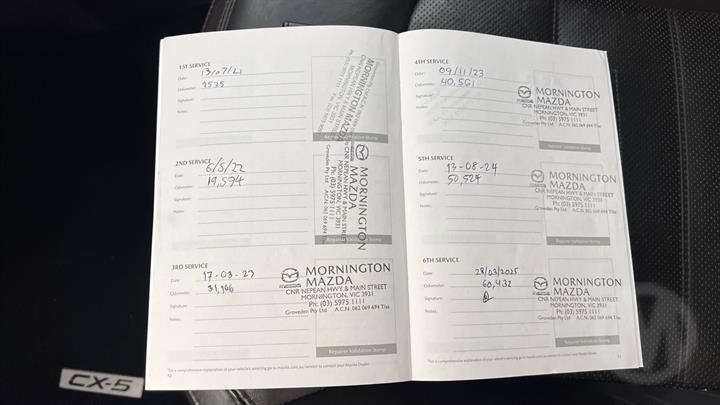 1ST SERVICE
Date: 13/07/21
Odometer: 7535
Signature:
Notes:
MORNINGTON MAZDA
CNR NEPEAN HWY & MAIN STREET
MORNINGTON, VIC 3931
Ph: (03) 5975 1111
Repairer Validation Stamp
2ND SERVICE
Date: 6/5/22
Odometer: 19,574
Signature:
Notes:
MORNINGTON
MAZDA
CNR NEPEAN HWY & MAIN STREET
MORNINGTON, VIC 3931
Ph: (03) 5975 1111
Groveden Pty Ltd A.C.N. 062 069 694
Repairer Validation Stamp
3RD SERVICE
Date: 17-03-23
Odometer: 31,106
Signature:
Notes:
MORNINGTON
MAZDA
CNR NEPEAN HWY & MAIN STREET
MORNINGTON, VIC 3931
Ph: (03) 5975 1111
Groveden Pty Ltd A.C.N. 062 069 694 T/as
Repairer Validation Stamp
12
4TH SERVICE
Date: 09/11/23
Odometer: 40,561
Signature:
Notes:
MORNINGTON
MAZDA
CNR NEPEAN HWY & MAIN STREET
MORNINGTON, VIC 3931
Ph: (03) 5975 1111
Groveden Pty Ltd A.C.N. 062 069 694 T/as
5TH SERVICE
Date: 13-08-24
Odometer: 50,524
Signature:
Notes:
MORNINGTON
MAZDA
CNR NEPEAN HWY & MAIN STREET
MORNINGTON, VIC 3931
Ph: (03) 5975 1111
Groveden Pty Ltd A.C.N. 062 069 694 T/as
Repairer Validation Stamp
6TH SERVICE
Date: 28/03/2025
Odometer: 60,432
Signature:
Notes:
MORNINGTON
MAZDA
CNR NEPEAN HWY & MAIN STREET
MORNINGTON, VIC 3931
Ph: (03) 5975 1111
Groveden Pty Ltd A.C.N. 062 069 694 T/as
Repairer Validation Stamp
CX-5